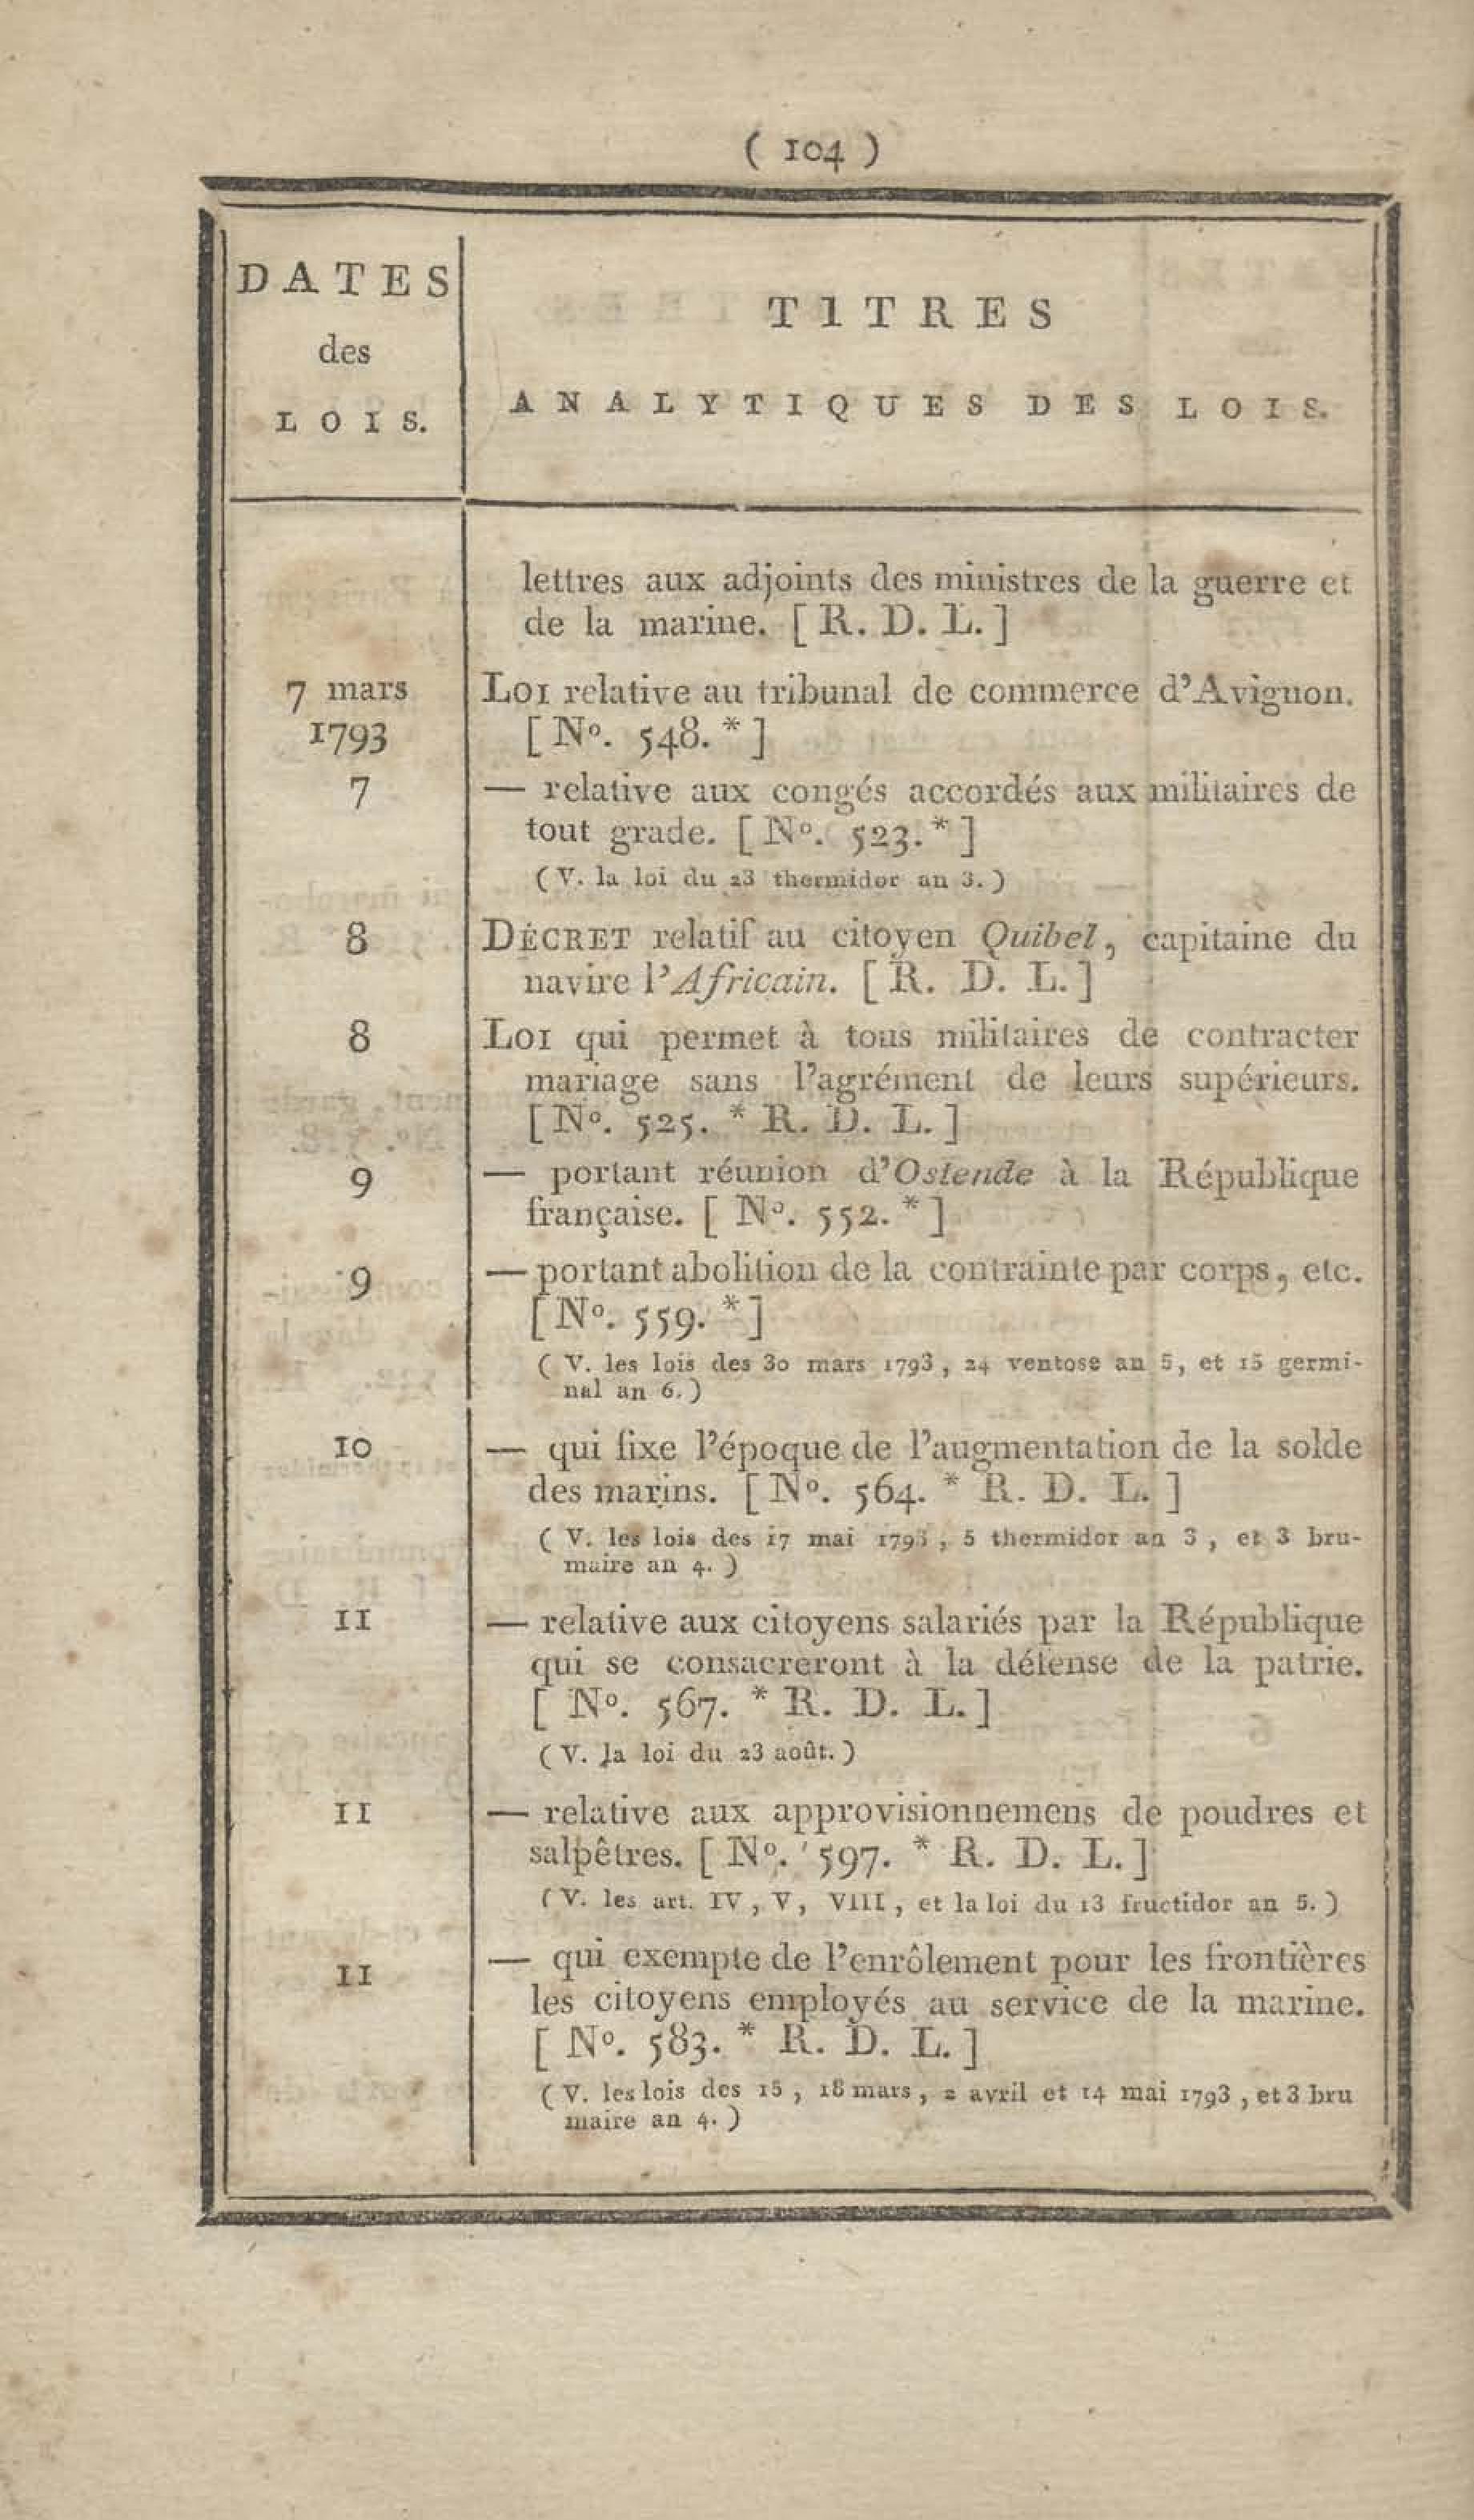 ( 104 )
DATES
des
LOIS.
TITRES
ANALYTIQUES DES LOIS.
lettres aux adjoints des ministres de la guerre et
de la marine. [ R. D. L. ]
7 mars LOI relative au tribunal de commerce d'Avignon.
1793 [ Nº. 548. * ]
7 — relative aux congés accordés aux militaires de
tout grade. [ Nº. 523. * ]
( V. la loi du 23 thermidor an 3. )
8 DÉCRET relatif au citoyen Quibel, capitaine du
navire l'Africain. [ R. D. L. ]
8 LOI qui permet à tous militaires de contracter
mariage sans l'agrément de leurs supérieurs.
[ Nº. 525. * R. D. L. ]
9 — portant réunion d'Ostende à la République
française. [ Nº. 552. * ]
9 — portant abolition de la contrainte par corps, etc.
[ Nº. 559. * ]
( V. les lois des 30 mars 1793, 24 ventose an 5, et 15 germi-
nal an 6. )
10 — qui fixe l'époque de l'augmentation de la solde
des marins. [ Nº. 564. * R. D. L. ]
( V. les lois des 17 mai 1793, 5 thermidor an 3, et 3 bru-
maire an 4. )
11 — relative aux citoyens salariés par la République
qui se consacreront à la défense de la patrie.
[ Nº. 567. * R. D. L. ]
( V. la loi du 23 août. )
11 — relative aux approvisionnemens de poudres et
salpêtres. [ Nº. 597. * R. D. L. ]
( V. les art. IV, V, VIII, et la loi du 13 fructidor an 5. )
11 — qui exempte de l'enrôlement pour les frontières
les citoyens employés au service de la marine.
[ Nº. 583. * R. D. L. ]
( V. les lois des 15, 18 mars, 2 avril et 14 mai 1793, et 3 bru
maire an 4. )